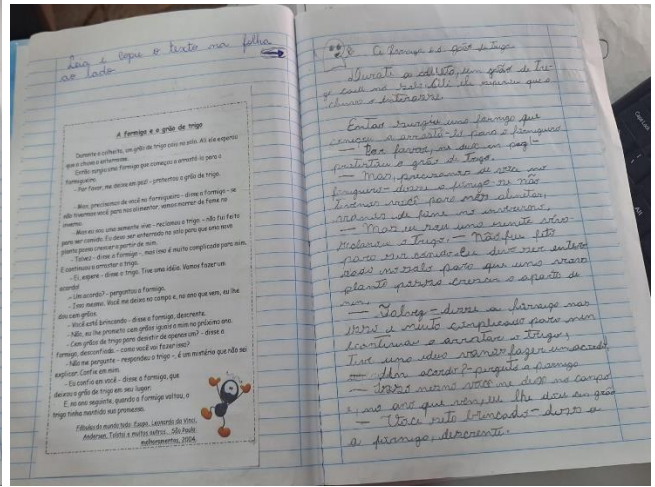 Leia e copie o texto na folha
ao lado
A formiga e o grão de trigo
Durante a colheita, um grão de trigo caiu no solo. Ali ele esperou
que a chuva o enterrasse.
Então surgiu uma formiga que começou a arrastá-lo para o
formigueiro.
- Por favor, me deixe em paz! - protestou o grão de trigo.
- Mas, precisamos de você no formigueiro - disse a formiga - se
não tivermos você para nos alimentar, vamos morrer de fome no
inverno.
- Mas eu sou uma semente viva - reclamou o trigo. - não fui feito
para ser comido. Eu devo ser enterrado no solo para que uma nova
planta possa crescer a partir de mim.
- Talvez - disse a formiga -, mas isso é muito complicado para mim.
E continuou a arrastar o trigo.
- Ei, espere - disse o trigo. Tive uma idéia. Vamos fazer um
acordo!
- Um acordo? - perguntou a formiga.
- Isso mesmo. Você me deixa no campo e, no ano que vem, eu lhe
dou cem grãos.
- Você está brincando - disse a formiga, descrente.
- Não, eu lhe prometo cem grãos iguais a mim no próximo ano.
- Cem grãos de trigo para desistir de apenas um? - disse a
formiga, desconfiada. - como você vai fazer isso?
- Não me pergunte - respondeu o trigo -, é um mistério que não sei
explicar. Confie em mim.
- Eu confio em você - disse a formiga, que
deixou o grão de trigo em seu lugar.
E, no ano seguinte, quando a formiga voltou, o
trigo tinha mantido sua promessa.
Fábulas do mundo todo: Esopo, Leonardo da Vinci,
Andersen, Tolstoi e muitos outros... São Paulo:
melhoramentos, 2004.
A formiga e o grão de trigo
colheita, um grão de tri-
chuva o enterrasse.
Então surgiu uma formiga que
para o formigueiro
- Por favor, me
o grão de trigo.
- Mas, precisamos de você no
formigueiro - disse a
você para nos
- Mas eu sou uma
o trigo. - Não fui feito
para ser comido. Eu devo ser enter-
rado no solo para que uma nova
planta possa crescer a
- Talvez - disse a formiga mas
isso é muito complicado para mim
continuou a arrastar o trigo,
Tive uma ideia vamos fazer um acordo
- Um acordo? -
- Isso mesmo você me deixa no campo
e, no ano que vem, eu lhe dou
- Você
a formiga, descrente.